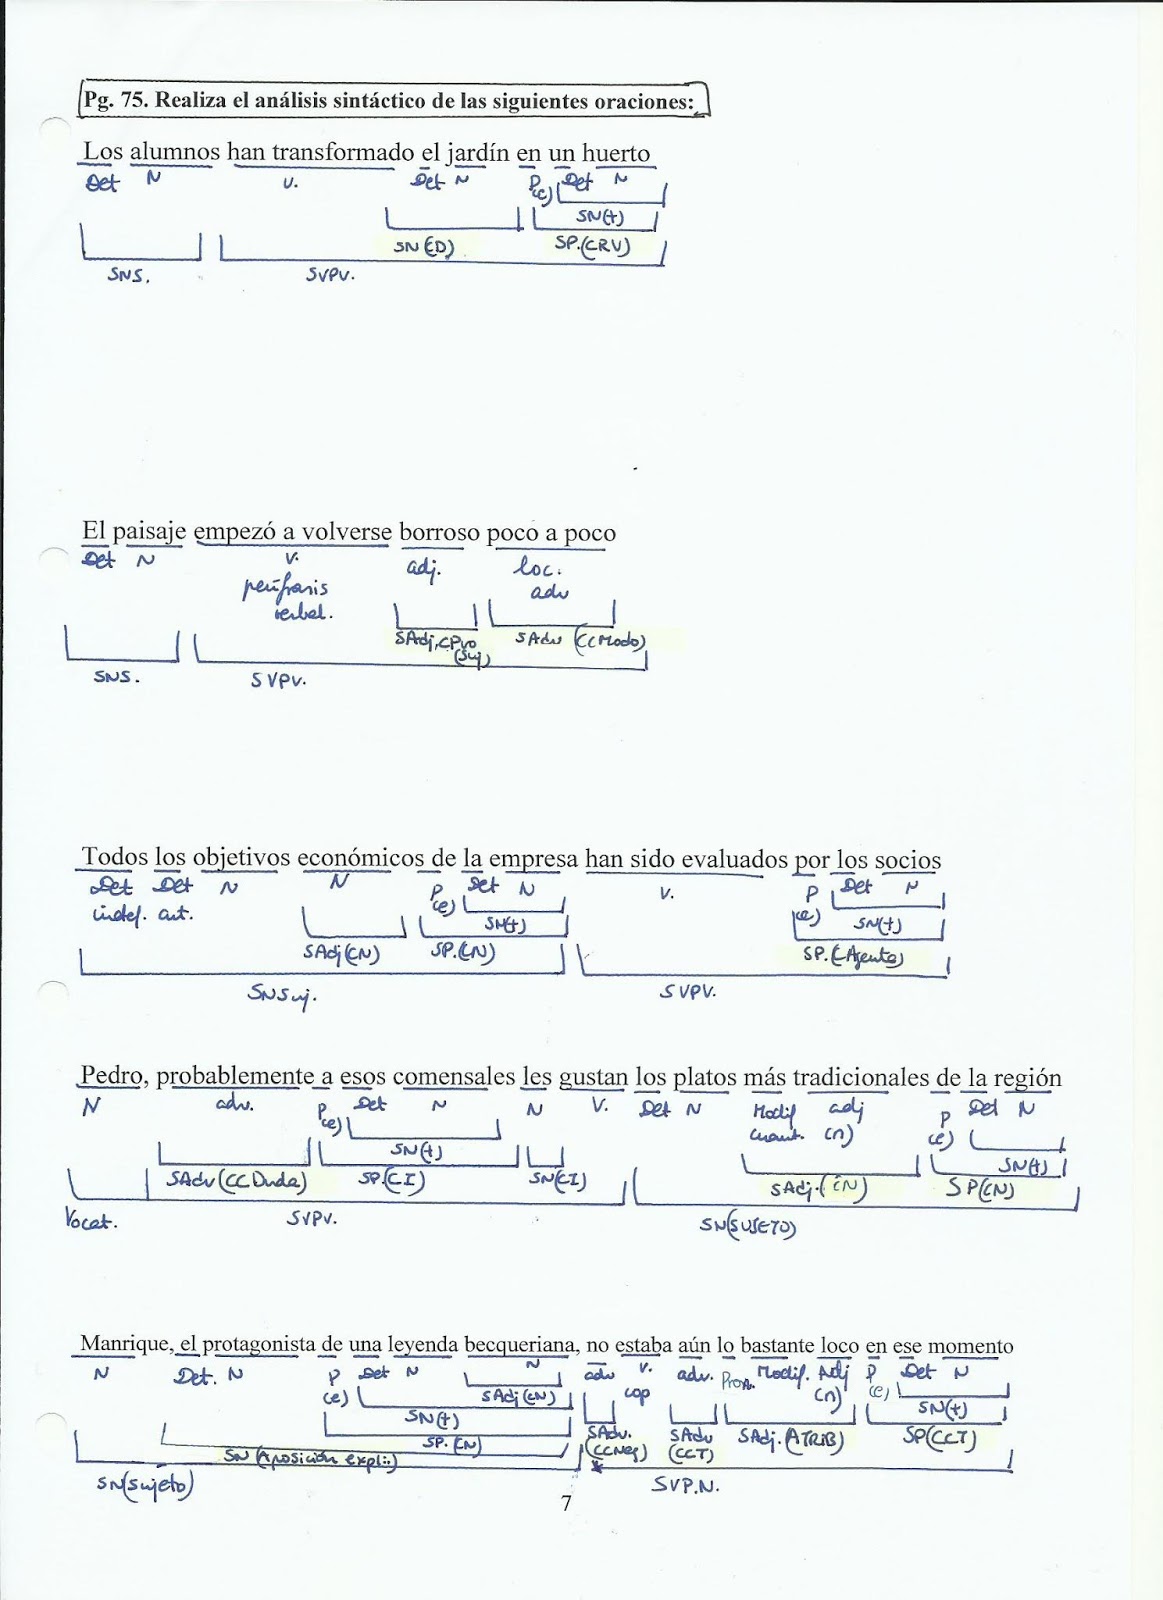 Pg. 75. Realiza el análisis sintáctico de las siguientes oraciones:
Los alumnos han transformado el jardín en un huerto
Det N V. Det N P Det N
(e) SN(t)
SN(CD) SP.(CRV)
SNS. SVPV.
El paisaje empezó a volverse borroso poco a poco
Det N V. adj. loc.
perífrasis adv
verbal.
SAdj,CPvo SAdv (CCModo)
(Suj)
SNS. SVPV.
Todos los objetivos económicos de la empresa han sido evaluados por los socios
Det Det N N P Det N V. P Det N
indef. art. (e) SN(t) (e) SN(t)
SAdj(CN) SP.(CN) SP.(CAgente)
SNSuj. SVPV.
Pedro, probablemente a esos comensales les gustan los platos más tradicionales de la región
N adv. P Det N N V. Det N Modif adj P Det N
(e) cuant. (n) (e)
SN(t) SN(t)
SAdv(CCDuda) SP.(CI) SN(CI) SAdj.(CN) SP(CN)
Vocat. SVPV. SN(SUJETO)
Manrique, el protagonista de una leyenda becqueriana, no estaba aún lo bastante loco en ese momento
N Det. N P Det N N adv v. adv. Pron. Modif. Adj P Det N
(e) SAdj(CN) cop (n) (e) SN(t)
SN(t) SAdv. SAdv SAdj.(ATRIB) SP(CCT)
SP.(CN) (CCNeg) (CCT)
SN(Aposición expli.)
SN(Sujeto) SVP.N.
7